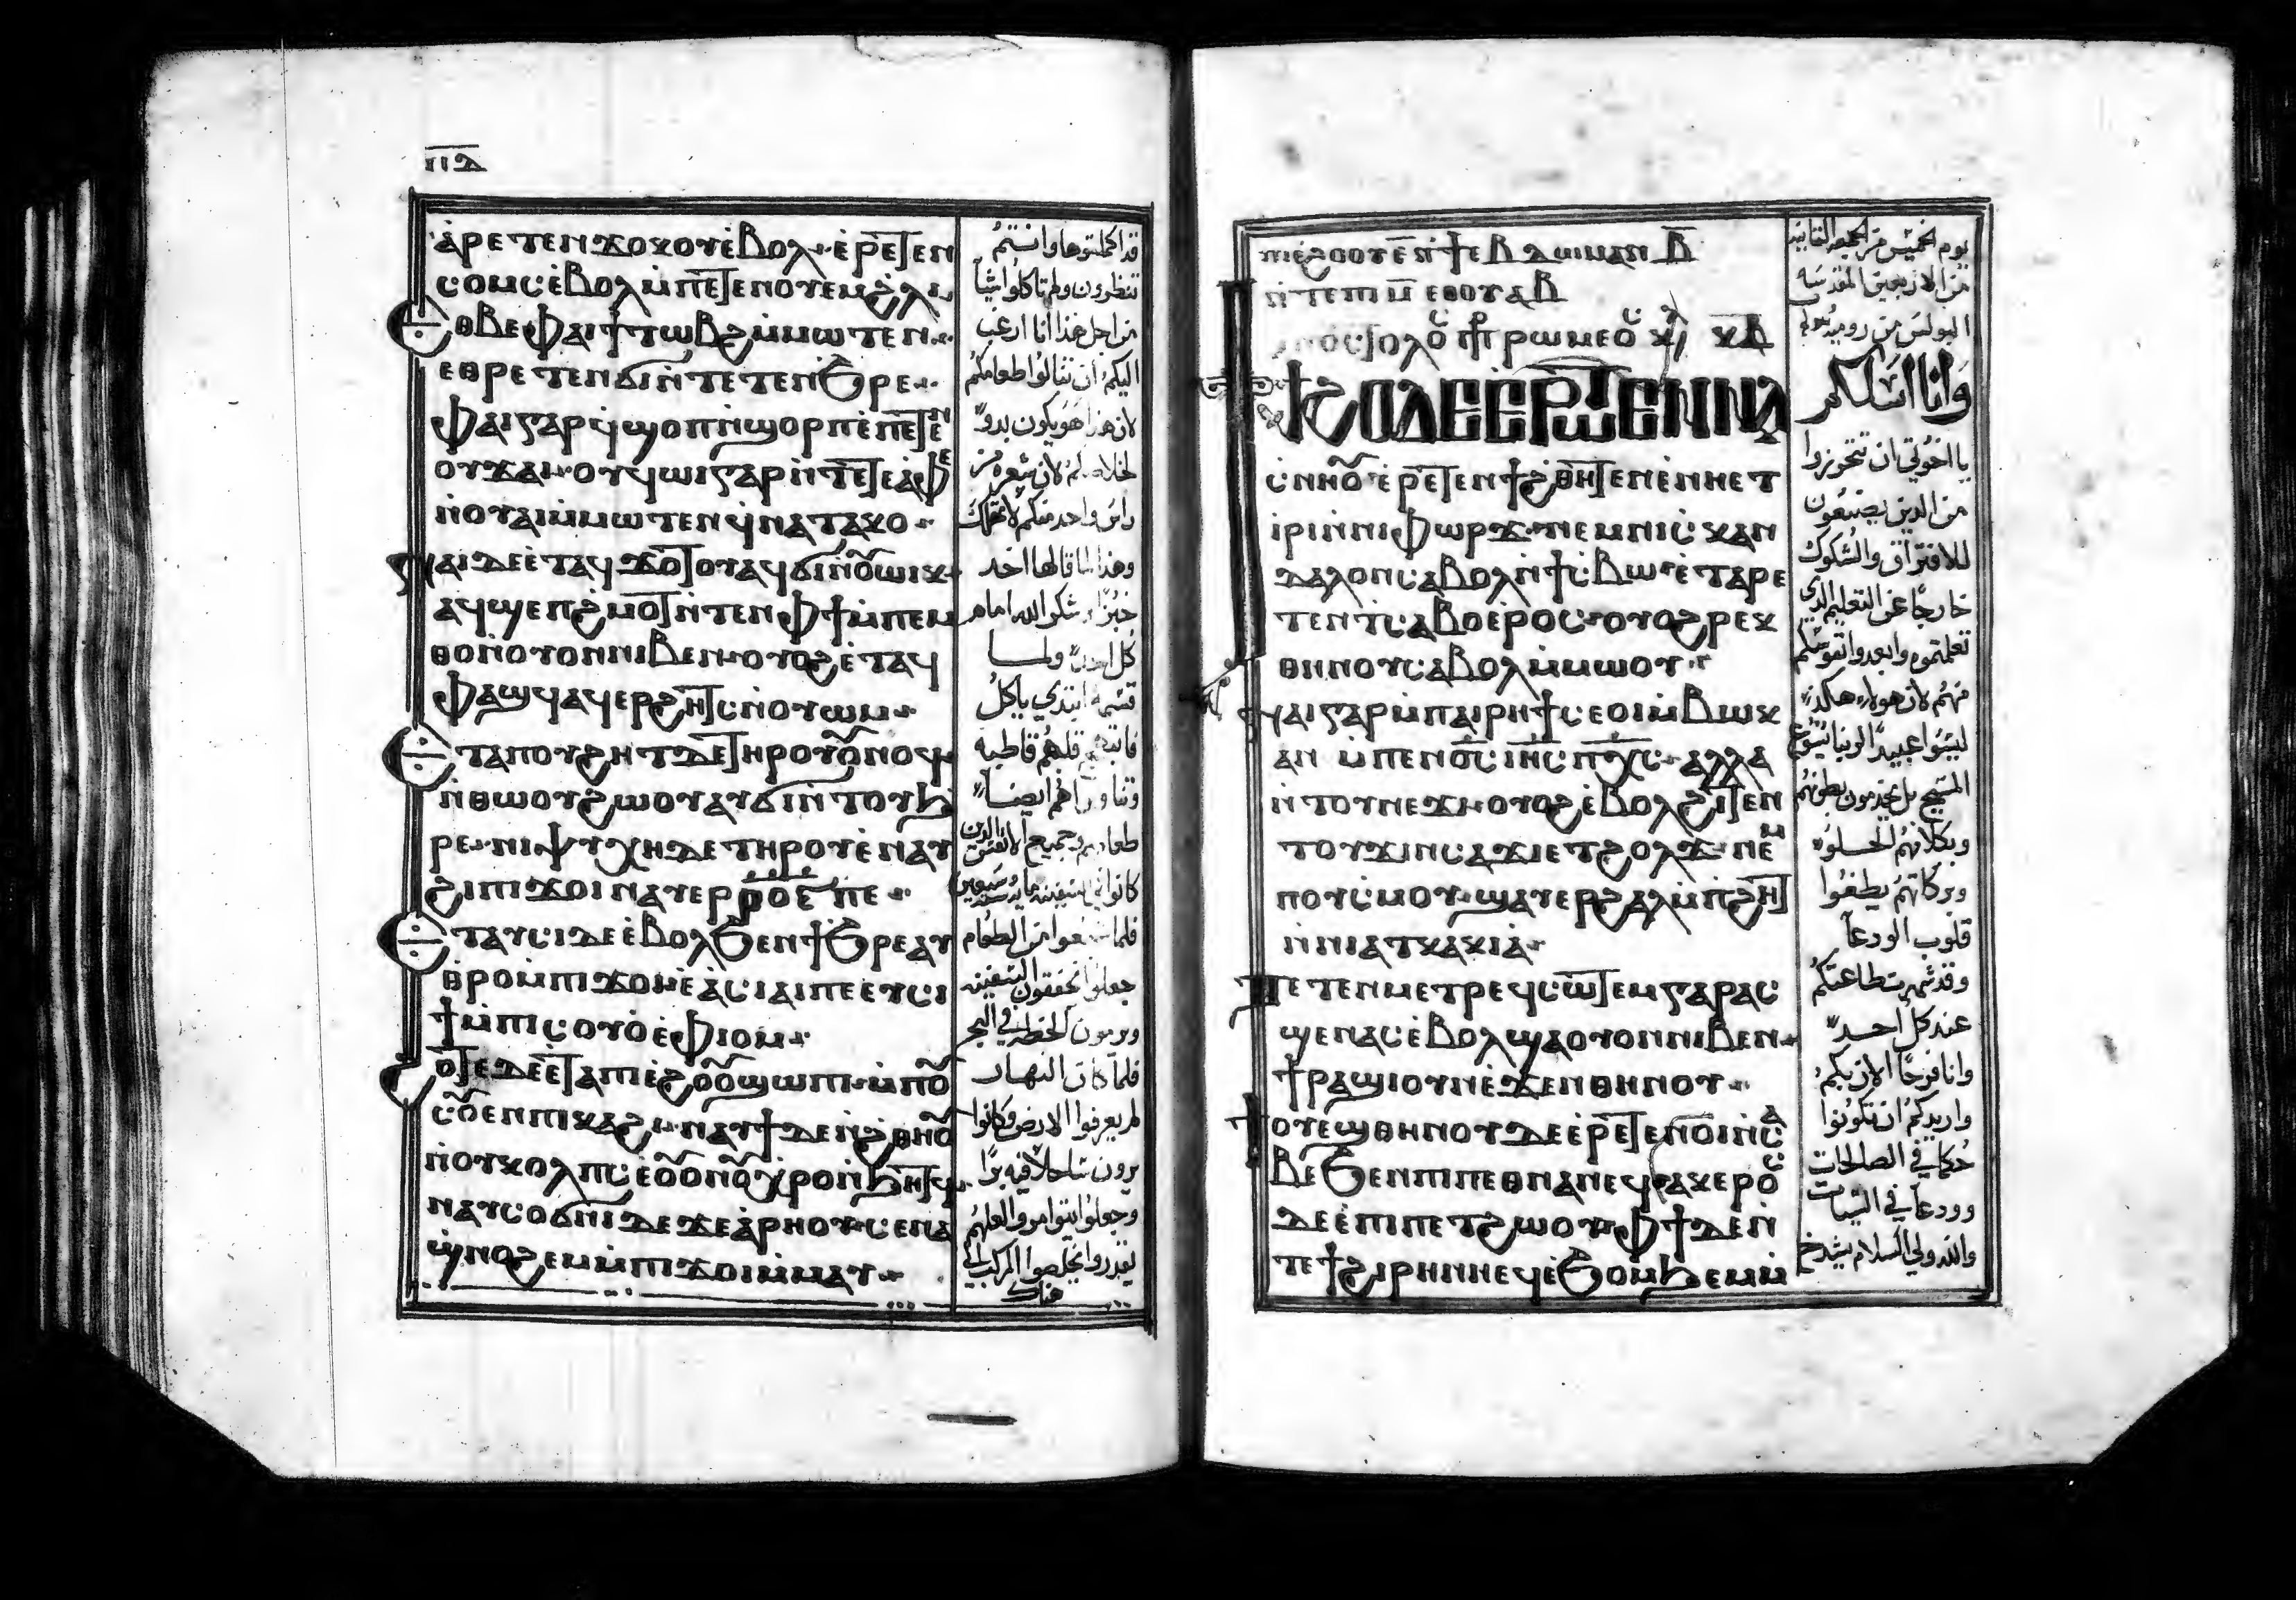 ⲡⲇ
ⲁ̀ⲣⲉⲧⲉⲛϫⲟⲕⲟⲩⲉ̀ⲃⲟⲗ· ⲉ̀ⲣⲉⲧⲉⲛ
ⲥⲟⲙⲥⲉ̀ⲃⲟⲗⲙ̀ⲡⲉⲧⲉⲛⲟⲩⲉⲙϩⲗⲓ
ⲉⲑⲃⲉⲫⲁⲓϯⲧⲱⲃϩⲙ̀ⲙⲱⲧⲉⲛ·
ⲉⲑⲣⲉⲧⲉⲛϭⲓⲛ̀ⲧⲉⲧⲉⲛϧⲣⲉ·
ⲫⲁⲓⲅⲁⲣϥ̀ϣⲟⲡⲛ̀ϣⲟⲣⲡⲉ̀ⲡⲉⲧⲉⲛ
ⲟⲩϫⲁⲓ· ⲟⲩϥⲱⲓⲅⲁⲣⲛ̀ⲧⲉⲧⲉⲁ̀ⲫⲉ
ⲛ̀ⲟⲩⲁⲓⲙ̀ⲙⲱⲧⲉⲛϥ̀ⲛⲁⲧⲁⲕⲟ·
ⲛⲁⲓⲇⲉⲉ̀ⲧⲁϥϫⲟⲧⲟⲩⲁϥϭⲓⲛ̀ⲟⲩⲱⲓⲕ
ⲁϥϣⲉⲡϩ̀ⲙⲟⲧⲛ̀ⲧⲉⲛⲫϯⲙ̀ⲡⲉⲙ
ⲑⲟⲛ̀ⲟⲩⲟⲛⲛⲓⲃⲉⲛ· ⲟⲩⲟϩⲉ̀ⲧⲁϥ
ⲫⲁϣϥⲁϥⲉⲣϩⲏⲧⲥⲛ̀ⲟⲩⲱⲙ·
ⲉⲧⲁⲡⲟⲩϩⲏⲧⲇⲉⲧⲏⲣⲟⲩⲟⲩⲛⲟϥ
ⲛ̀ⲑⲱⲟⲩϩⲱⲟⲩⲁⲩϭⲓⲛ̀ⲧⲟⲩϧ
ⲣⲉ· ⲛⲓⲯⲩⲭⲏⲇⲉⲧⲏⲣⲟⲩⲉ̀ⲛⲁⲩ
ϩⲓⲡⲓϫⲟⲓⲛⲁⲩⲉⲣ
ⲉⲧⲁⲩⲥⲓⲇⲉⲉ̀ⲃⲟⲗϧⲉⲛϯϧⲣⲉⲁⲩ
ⲑⲣⲟⲙ̀ⲡⲓϫⲟⲓⲉ̀ⲁⲥⲓⲁⲓⲡⲉⲉⲩⲥⲓ
ϯⲙ̀ⲡⲓⲥⲟⲩⲟ̀ⲉ̀ⲫⲓⲟⲙ·
ϩⲟⲧⲉⲇⲉⲉ̀ⲧⲁⲡⲓⲉ̀ϩⲟⲟⲩϣⲱⲡⲓ· ⲙ̀ⲡⲟⲩ
ⲥⲟⲩⲉⲛⲡⲓⲕⲁϩⲓ· ⲛⲁⲩϯⲇⲉⲛ̀ϩⲑⲏⲟⲩ
ⲛ̀ⲟⲩⲕⲟⲗⲡⲥⲉ̀ⲟⲩⲟⲛⲟⲩⲭⲣⲟⲛ̀ϧⲏⲧϥ·
ⲛⲁⲩⲥⲟϭⲛⲓⲇⲉϫⲉⲁ̀ⲣⲏⲟⲩ· ⲥⲉⲛⲁ
ϣ̀ⲛⲟϩⲉⲙⲙ̀ⲡⲓϫⲟⲓⲙ̀ⲙⲁⲩ·
قد اكملتوها وانتم
تنظرون ولم تاكلوا شيا
من اجل هذا انا ارغب
اليكم ان تنالوا طعامكم
لان هذا هو يكون بدو
لخلاصكم لان شعره من
راس واحد منكم لا تهلك
وهذا لما قالها اخد
خبزا وشكر الله امام
كل احد ولما
قسمه ابتدي ياكل
طعامهم وجميع الانفس الذين
فلما شبعوا من الطعام
جعلوا يخففون السفينه
ويرمون الحنطه في البحر
فلما كان النهار
لم يعرفوا الارض وكانوا
يرون ساحلا فيه برا
وجعلوا ايتوامروا لعلهم
يقدروا يخلصوا المركب الي
هناك
ⲡⲓⲉ̀ϩⲟⲟⲩⲉ̄ⲛ̀ϯⲉⲃⲇⲱⲙⲁⲥ ⲃ̄
ⲛ̀ⲧⲉⲡⲓⲙ̄ ⲉⲑⲟⲩⲁⲃ
يوم الخميس من الجمعه الثانيه
من الاربعين المقدسه
البولس من روميه
ϯϩⲟⲇⲉⲉⲣⲱⲧⲉⲛⲛⲁ
ⲥⲛⲏⲟⲩⲉ̀ⲣⲉⲧⲉⲛϯϩ̀ⲑⲏⲧⲉⲛⲉ̀ⲛⲏⲉⲧ
ⲓⲣⲓⲛ̀ⲛⲓⲫⲱⲣϫ· ⲛⲉⲙⲛⲓⲥⲕⲁⲛ
ⲇⲁⲗⲟⲛⲥⲁⲃⲟⲗⲛ̀ϯⲥ̀ⲃⲱⲉ̀ⲧⲁⲣⲉ
ⲧⲉⲛⲧⲥⲁⲃⲟⲉ̀ⲣⲟⲥ· ⲟⲩⲟϩⲣⲉⲕ
ⲑⲏⲛⲟⲩⲥⲁⲃⲟⲗⲙ̀ⲙⲱⲟⲩ·
ⲛⲁⲓⲅⲁⲣⲙ̀ⲡⲁⲓⲣⲏϯⲥⲉⲟⲓⲙ̀ⲃⲱⲕ
ⲁⲛ ⲙ̀ⲡⲉⲛⲟ̄ⲥ̄ⲓⲏ̄ⲥ̄ⲡⲭ̄ⲥ̄· ⲁⲗⲗⲁ
ⲛ̀ⲧⲟⲩⲛⲉϫⲓ· ⲟⲩⲟϩⲉ̀ⲃⲟⲗϩⲓⲧⲉⲛ
ⲧⲟⲩϫⲓⲛⲥⲁϫⲓⲉⲧϩⲟⲗϫ· ⲛⲉⲙ
ⲡⲟⲩⲥ̀ⲙⲟⲩ· ϣⲁⲩⲉⲣϩⲁⲗⲙ̀ⲡϩⲏⲧ
ⲛ̀ⲛⲓⲁⲧⲕⲁⲕⲓⲁ̀·
ⲡⲉⲧⲉⲛⲙⲉⲧⲣⲉϥⲥⲱⲧⲉⲙⲅⲁⲣⲁⲥ
ϣⲉⲛⲁⲥⲉ̀ⲃⲟⲗϣⲁⲟⲩⲟⲛⲛⲓⲃⲉⲛ·
ϯⲣⲁϣⲓⲟⲩⲛⲉ̀ϫⲉⲛⲑⲏⲛⲟⲩ·
ϯⲟⲩⲉϣⲑⲏⲛⲟⲩⲇⲉⲉ̀ⲣⲉⲧⲉⲛⲟⲓⲛ̀ⲥⲁ
ⲃⲉϧⲉⲛⲡⲓⲡⲉⲑⲛⲁⲛⲉϥ· ⲁⲕⲉⲣⲟⲥ
ⲇⲉⲉ̀ⲡⲓⲡⲉⲧϩⲱⲟⲩ· ⲫϯⲇⲉⲛ̀
ⲧⲉϯϩⲓⲣⲏⲛⲏⲉϥⲉ̀ϧⲟⲙϧⲉⲙⲙ̀
وانا اسالكم
يا اخوتي ان تتحرزوا
من الذين يصنعون
للافتراق والشكوك
خارجا عن التعليم الذي
تعلمتموه وابعدوا نفوسكم
منهم لان هولا هكذا
ليسوا عبيدا لربنا يسوع
المسيح بل يخدمون بطونهم
وبكلامهم الحلو
وبركاتهم يطغوا
قلوب الودعا
وقد شهرت طاعتكم
عند كل احد
وانا فرحا الان بكم
واريدكم ان تكونوا
حكما في الصالحات
وودعا في السيات
والله ولي السلام يشدخ